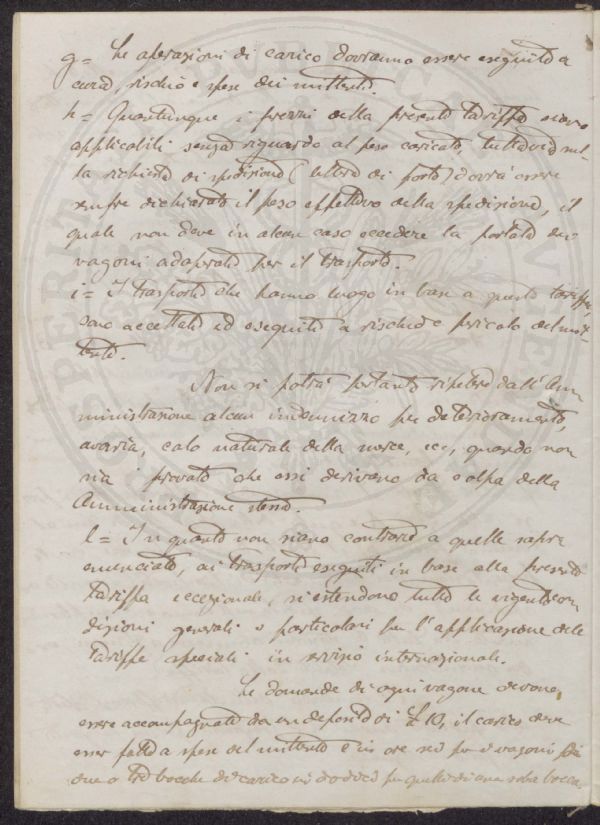 g = Le operazioni di carico dovranno essere eseguite a
cura, rischio e spese dei mittenti.
h = Quantunque i prezzi della presente tariffa siano
applicabili senza riguardo al peso caricato, tuttavia nel-
la richiesta di spedizione (lettera di porto) dovrà essere
sempre dichiarato il peso effettivo della spedizione, il
quale non deve in alcun caso eccedere la portata dei
vagoni adoperati per il trasporto.
i = I trasporti che hanno luogo in base a questa tariffa,
sono accettati ed eseguiti a rischio e pericolo del mit-
tente.
Non si potrà pertanto ripetere dall'Am-
ministrazione alcun indennizzo per deterioramento,
avaria, calo naturale della merce, ecc, quando non
sia provato che essi derivano da colpa della
Amministrazione stessa.
l = In quanto non siano contrarie a quelle sopra
enunciate, ai trasporti eseguiti in base alla presente
tariffa eccezionale, si estendono tutte le vigenti con-
dizioni generali e particolari per l'applicazione delle
tariffe speciali in servizio internazionale.
Le domande di ogni vagone devono,
essere accompagnate da un deposito di £ 10, il carico deve
esser fatto a spese del mittente e in ore sei per i vagoni
due o tre bocche di carico ed in dodici per quelli di una sola bocca.